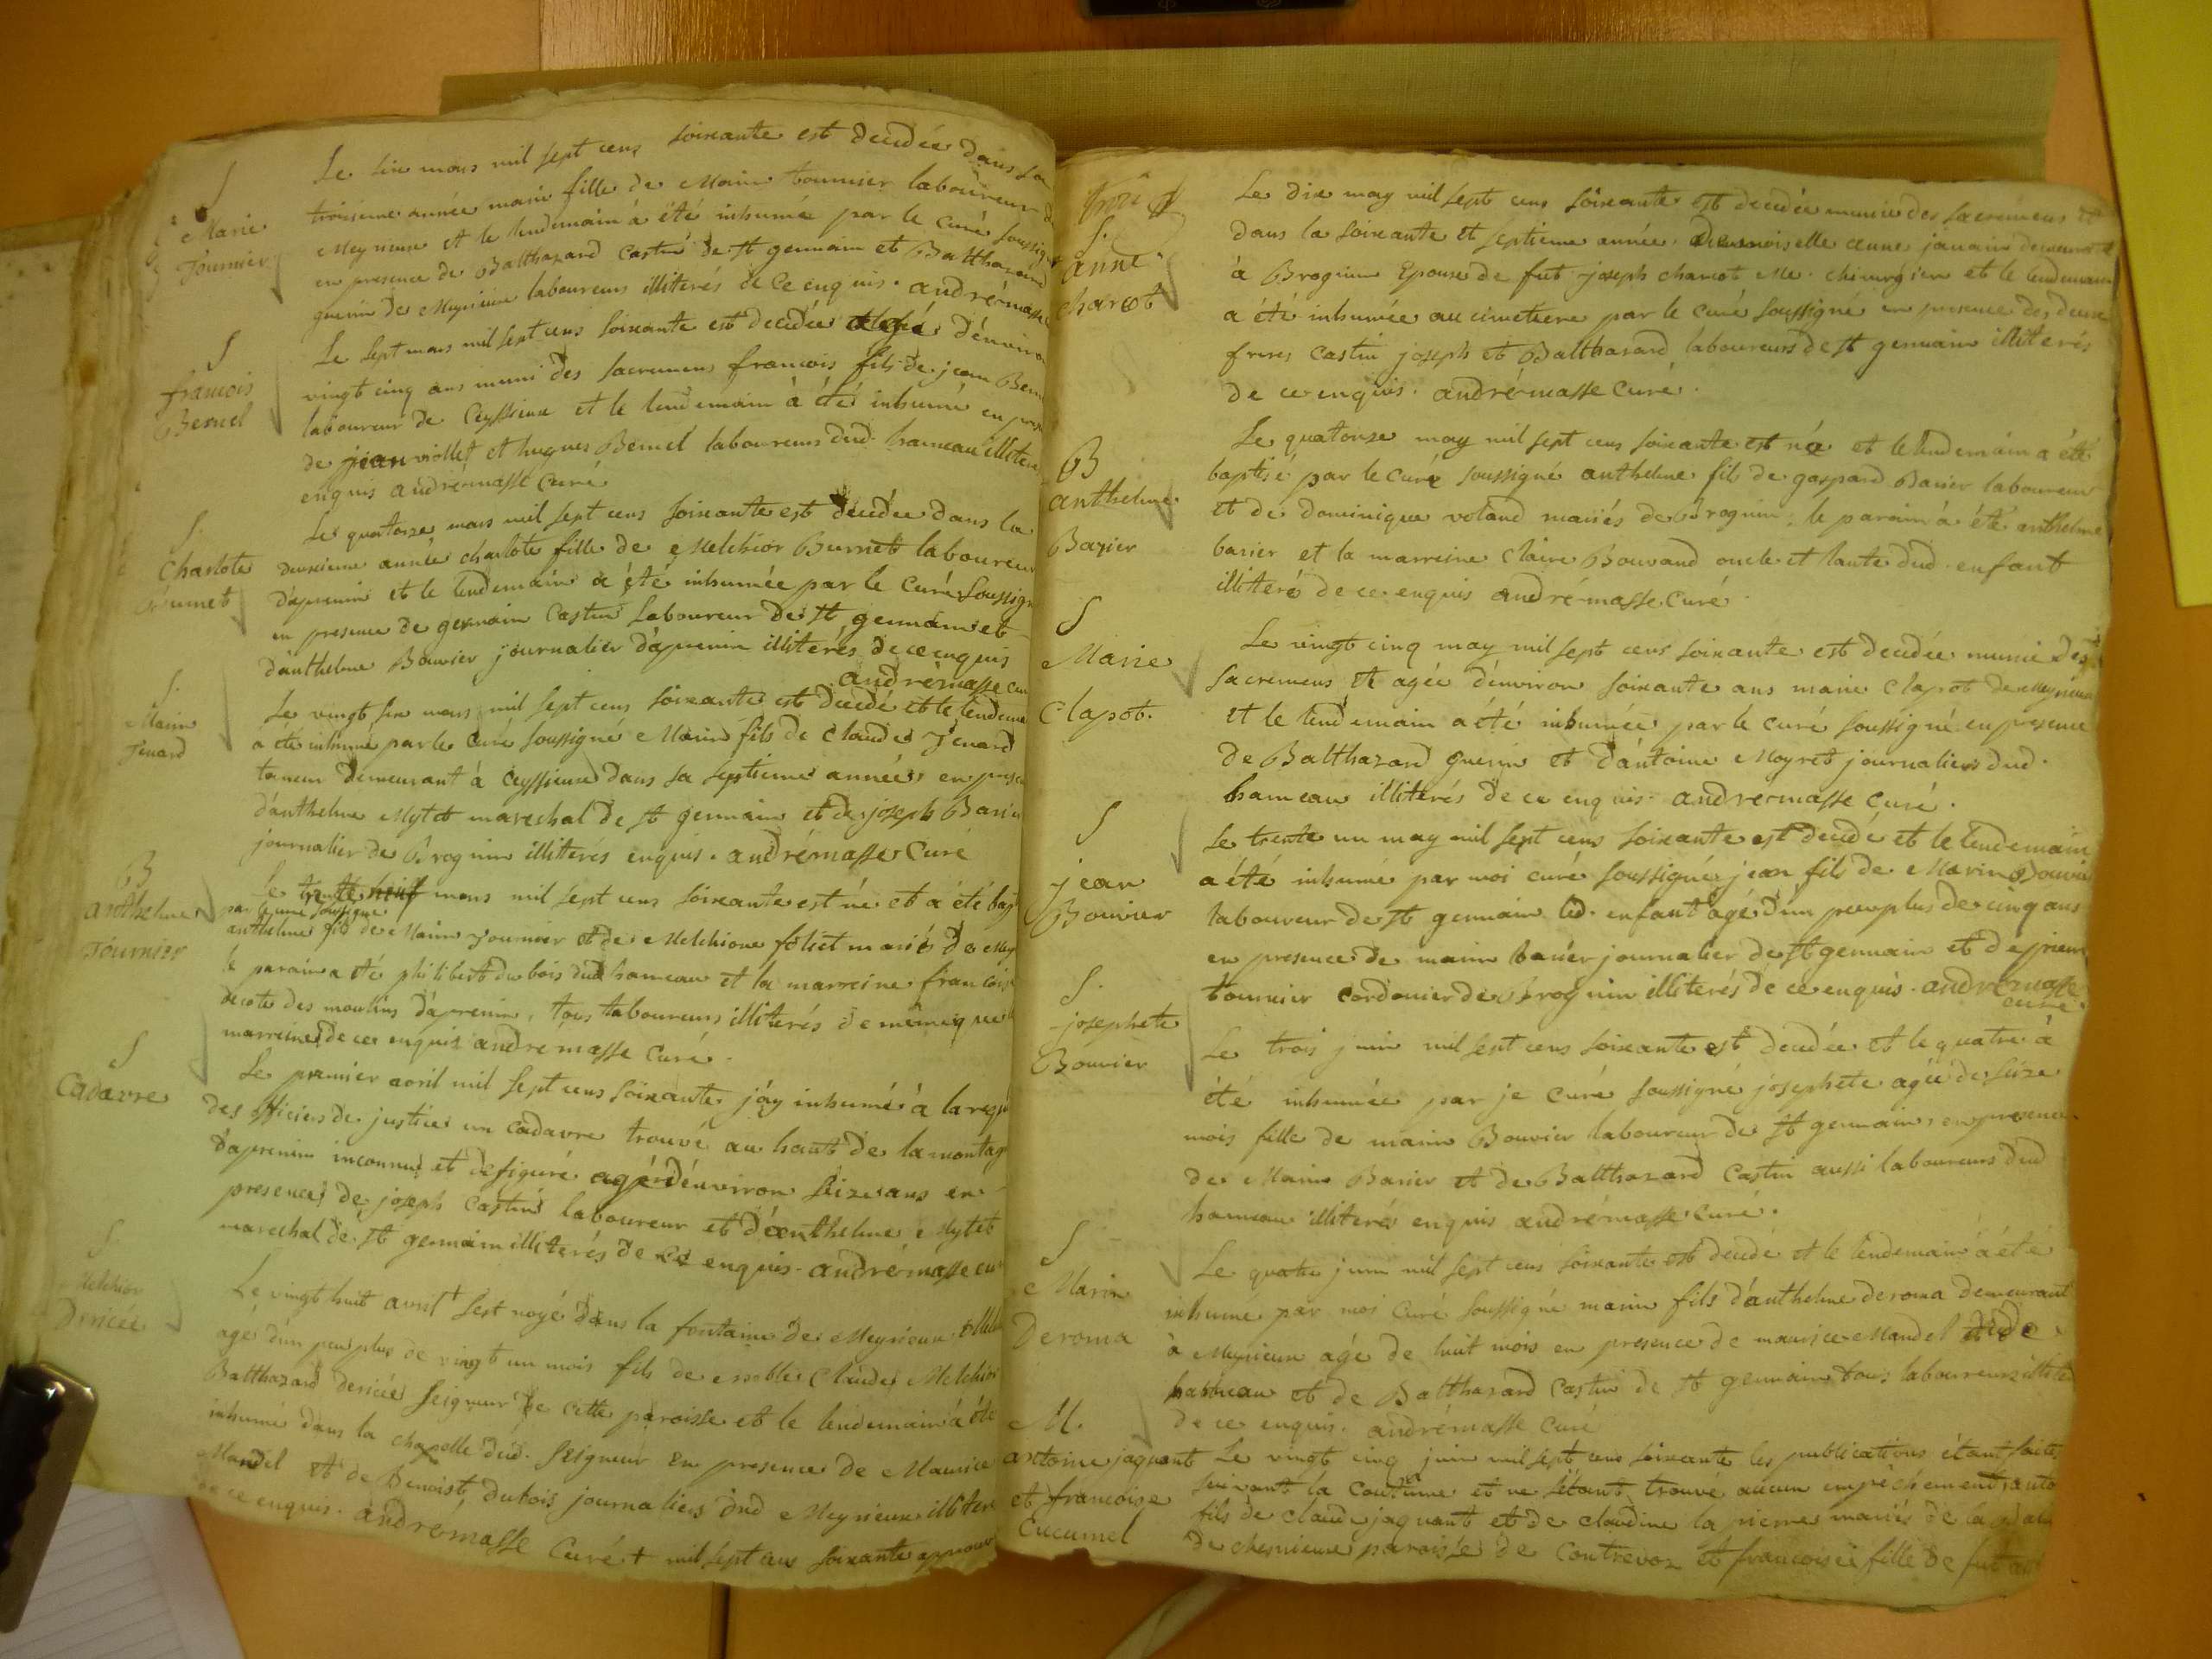 S
Marie
Tournier
Le six mars mil sept cens soixante est decedée dans sa
troisieme année marie fille de Marin tournier laboureur de
Meyrieux et le lendemain à été inhumée par le curé soussigné
en presence de Balthazard Castin de st germain et Balthazard
guerin de Meyrieux laboureurs illiterés de ce enquis. andrémasse
S
francois
Bernel
Le sept mars mil sept cens soixante est decedée agé d'environ
vingt cinq ans muni des sacremens francois fils de jean
laboureur de Ceyssieux et le lendemain à été inhumé en
de jean viollet et hugues Bernel laboureurs dud. hameau
enquis andrémasse Curé
S.
Charlote
Burnet
Le quatorze mars mil sept cens soixante est decedée dans la
deuxieme année charlote fille de Melchior Burnet laboureur
d'apremin et le lendemain a été inhumée par le Curé soussigné
en presence de germain Castin laboureur de st germain et
d'anthelme Bouvier journalier d'apremin illiterés de ce enquis
andrémasse
S.
Marin
Jenard
Le vingt six mars mil sept cens soixante est decedé et le
à été inhumé par le Curé soussigné Marin fils de Claude Jenard
demeurant à Ceyssieux dans sa septieme année, en
d'anthelme Mytet marechal de st germain et de joseph
journalier de Brognin illiterés enquis. andrémasse Curé
B
anthelme
Tournier
Le mars mil sept cens soixante est né et a été
par le curé soussigné
anthelme fils de Marin Tournier et de Melchione mariés de
le parain a été philibert du bois dud hameau et la marreine
decote des moulins d'apremin, tous laboureurs illiterés de meme que
marreine de ce enquis andrémasse Curé.
S
Cadavre
Le premier avril mil sept cens soixante j'ay inhumé à la
des officiers de justice un cadavre trouvé au haut de la
d'apremin inconnu et defiguré agé d'environ seize ans en
presence de joseph Castin laboureur et d'anthelme Mytet
marechal de st germain illiterés de ce enquis. andrémasse
S.
Melchior
Dericée
Le vingt huit avril + s'est noyé dans la fontaine de Meyrieux
agé d'un peu plus de vingt un mois fils de noble Claude Melchior
Balthazard dericée seigneur de cette paroisse et le lendemain à été
inhumé dans la chapelle dud. seigneur en presence de Maurice
Mandel et de Benoist dubois journaliers dud Meyrieux
de ce enquis. andrémasse Curé + mil sept cens soixante
S.
anne
charcot
Le dix may mil sept cens soixante est decedée munie des sacremens et
dans la soixante et septieme année, Demoiselle anne janain
à Brognin Epouse de fut joseph charcot Me. chirurgien et le lendemain
a été inhumée au cimetiere par le Curé soussigné en presence des deux
freres Castin joseph et Balthazard laboureurs de st germain illiterés
de ce enquis. andrémasse Curé.
B
anthelme
Bazier
Le quatorze may mil sept cens soixante est né et le lendemain a été
baptisé par le Curé soussigné anthelme fils de gaspard Barier laboureur
et de dominique voland mariés de Brognin; le parain a été anthelme
barier et la marreine Claire Bouvand oncle et tante dud. enfant
illiteré de ce enquis andrémasse. Curé
S
Marie
Clapot.
Le vingt cinq may mil sept cens soixante est decedée munie des
Sacremens et agée d'environ soixante ans marie Clapot de Meyrieux
et le lendemain a été inhumée par le curé soussigné en presence
de Balthazard guerin et d'antoine Moyret journaliers dud.
hameau illiterés de ce enquis. andrémasse Curé.
S
jean
Bouvier
Le trente un may mil sept cens soixante est decedé et le lendemain
a été inhumé par moi curé soussigné jean fils de Marin Bouvier
laboureur de st germain led. enfant agé d'un peu plus de cinq ans
en presence de marin barier journalier de st germain et de
tournier cordonier de Brognin illiterés de ce enquis. andrémasse
curé.
S.
josephete
Bouvier
Le trois juin mil sept cens soixante est decedée et le quatre à
été inhumée par je Curé soussigné josephete agée de seize
mois fille de marin Bouvier laboureur de st germain, en presence
de Marin Barier et de Balthazard Castin aussi laboureurs dud
hameau illiterés enquis andrémasse Curé.
S
Marin
Deroma
Le quatre juin mil sept cens soixante est decedé et le lendemain à été
inhume par moi Curé soussigné marin fils d'anthelme deroma demeurant
à Meyrieux agé de huit mois en presence de maurice Mandel
hameau et de Balthazard Castin de st germain tous laboureurs
de ce enquis. andrémasse Curé
M.
antoine jaquant
et francoise
Cucumel
Le vingt cinq juin mil sept cens soixante les publications étant faites
suivant la Coutume et ne s'étant trouvé aucun empechement,
fils de claude jaquant et de claudine la pierre mariés de
de chemieux paroisse de Contrevoz et francoise fille de fut